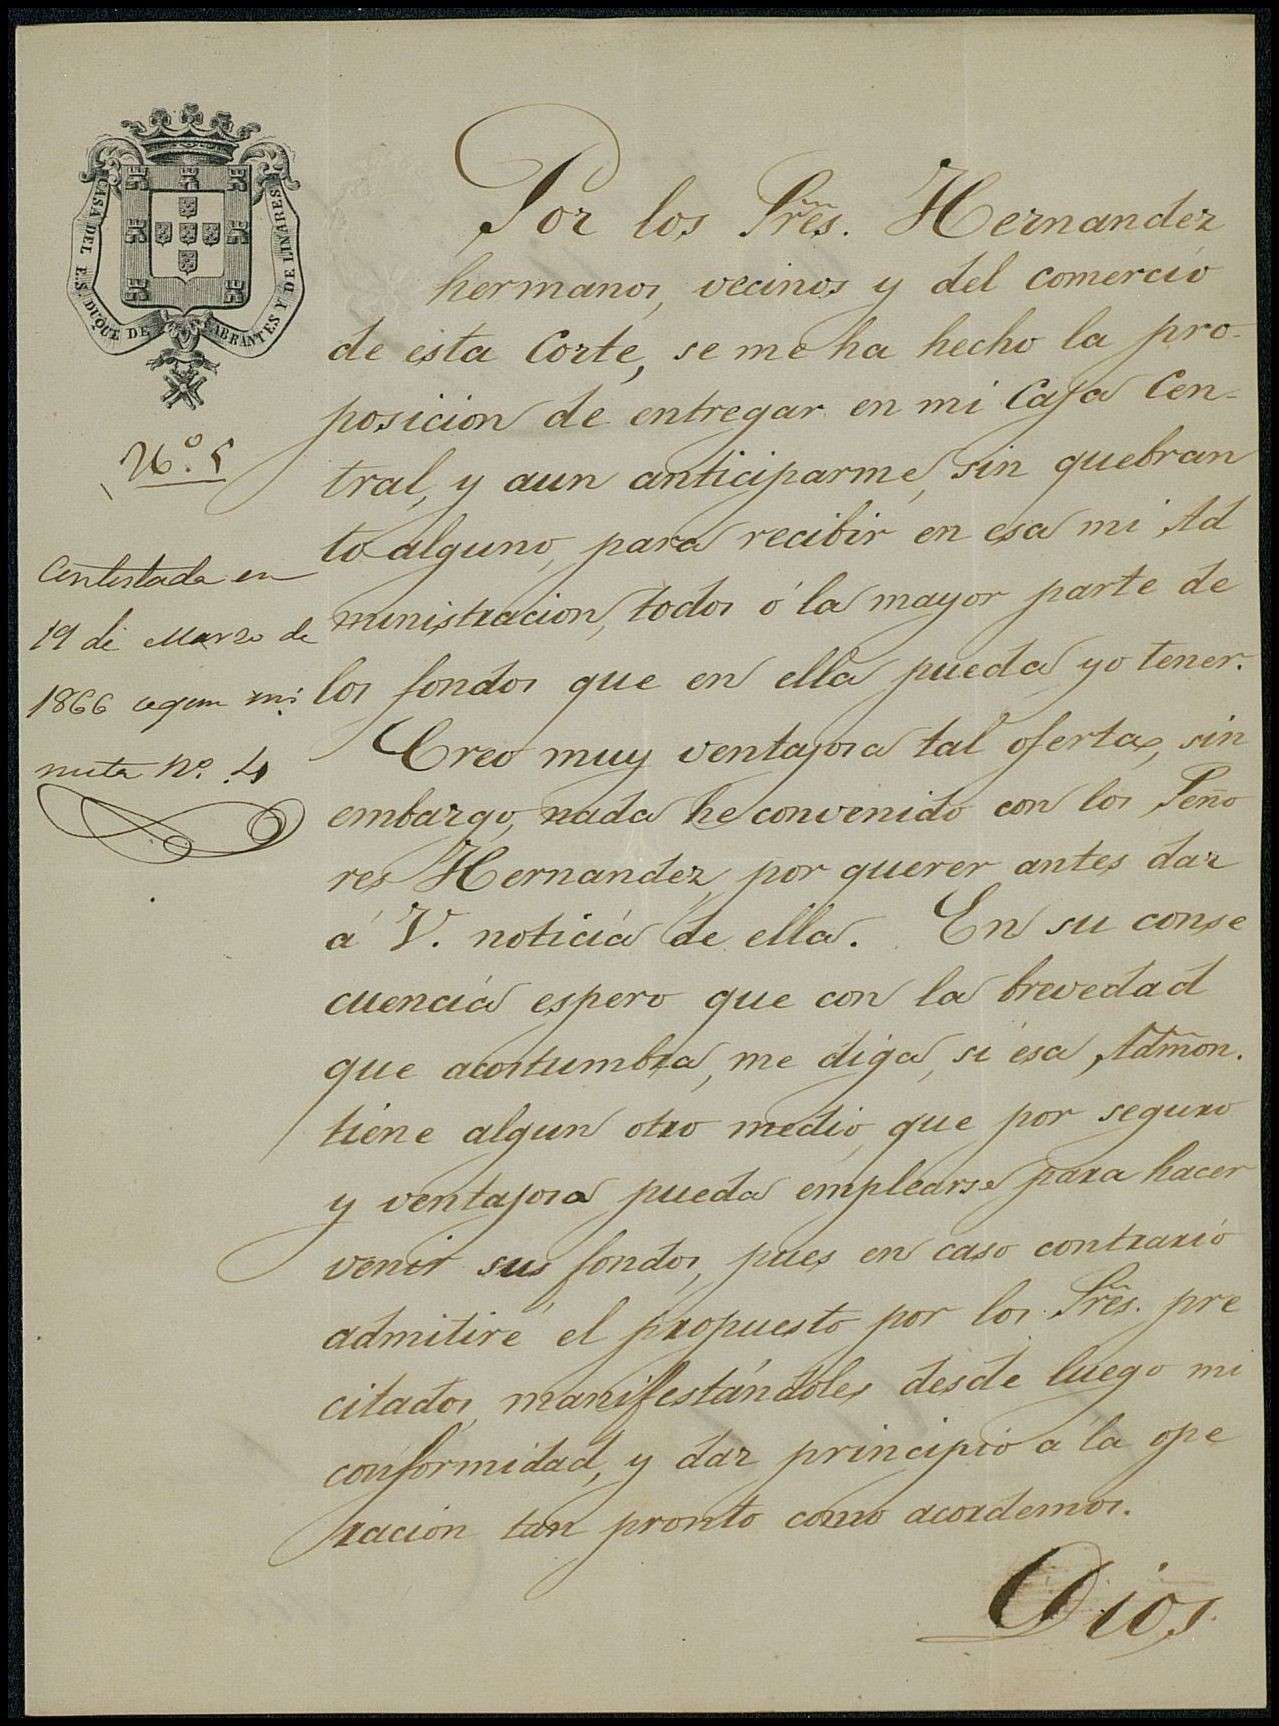 CASA DEL E.S. DUQUE DE ABRANTES Y DE LINARES
Nº. 5
Contestada en
19 de Marzo de
1866 segun mi
nuta Nº. 4
Por los Sres. Hernandez
hermanos, vecinos y del comercio
de esta Corte, se me ha hecho la pro-
posicion de entregar en mi Caja Cen-
tral, y aun anticiparme, sin quebran
to alguno, para recibir en esa mi Ad
ministracion, todos ó la mayor parte de
los fondos que en ella pueda yo tener.
Creo muy ventajosa tal oferta, sin
embargo, nada he convenido con los Seño
res Hernandez, por querer antes dar
á V. noticia de ella. En su conse
cuencia espero que con la brevedad
que acostumbra, me diga, si esa Admon.
tiene algun otro medio, que por seguro
y ventajosa pueda emplearse para hacer
venir sus fondos, pues en caso contrario
admitiré el propuesto por los Sres. pre
citados, manifestándoles desde luego mi
conformidad, y dar principio á la ope
racion tan pronto como acordemos.
Dios